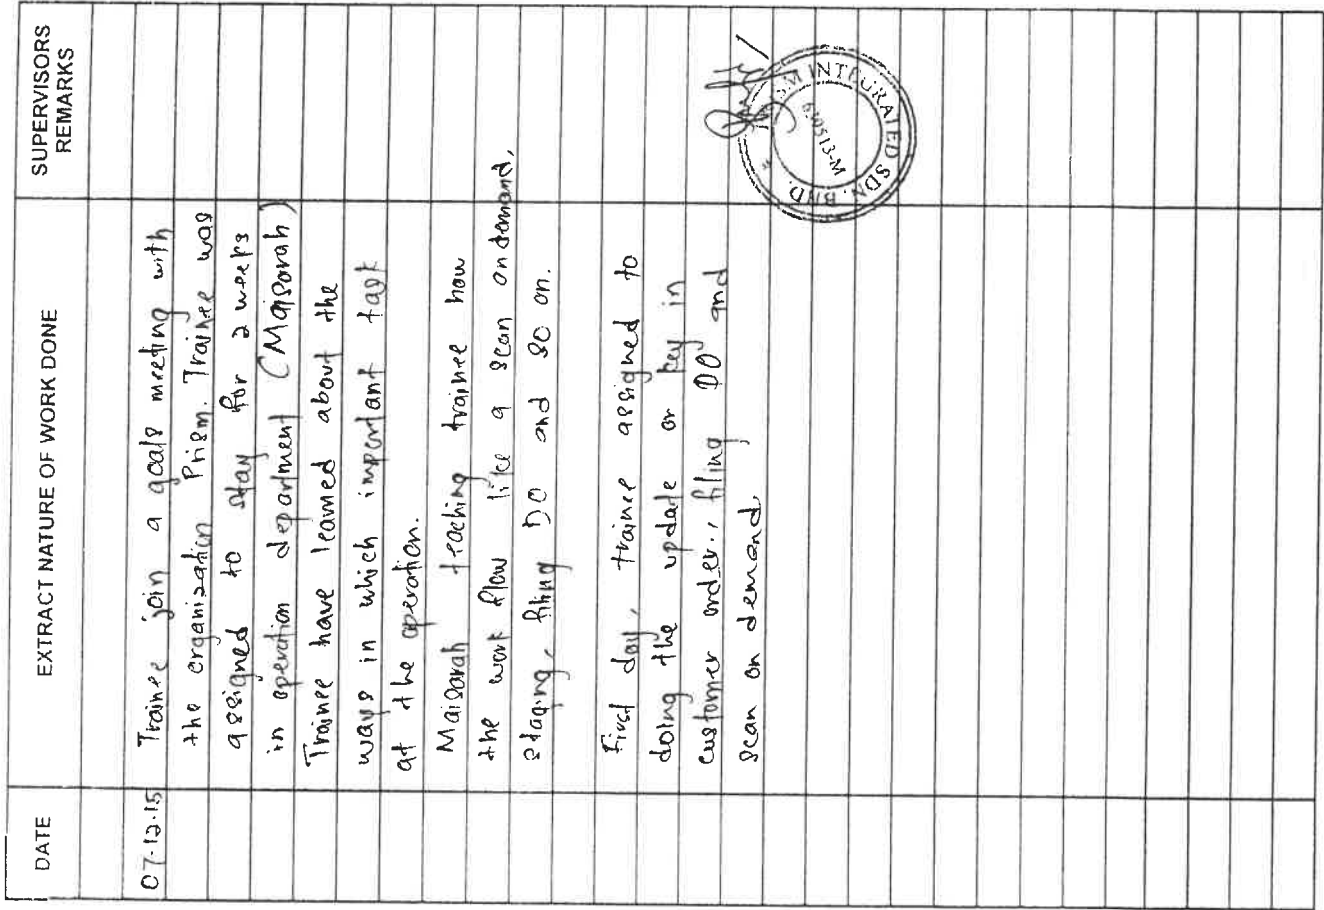 DATE
EXTRACT NATURE OF WORK DONE
SUPERVISORS
REMARKS
07-12-15
Trainee join a goals meeting with
the organization Prism. Trainee was
assigned to stay for 2 weeks
in operation department (Maisarah)
Trainee have learned about the
ways in which important task
at the operation.
Maisarah teaching trainee how
the work flow like a scan on demand,
staging, filing DO and so on.
First day, trainee assigned to
doing the update or key in
customer order, filing DO and
scan on demand.
INTEGRATED SDN. BHD.
630513-M